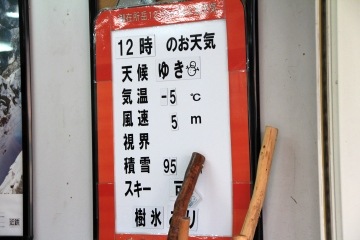 12時 のお天気
天候 ゆき
気温 -5 ℃
風速 5 m
視界
積雪 95
スキー 可
樹氷 り